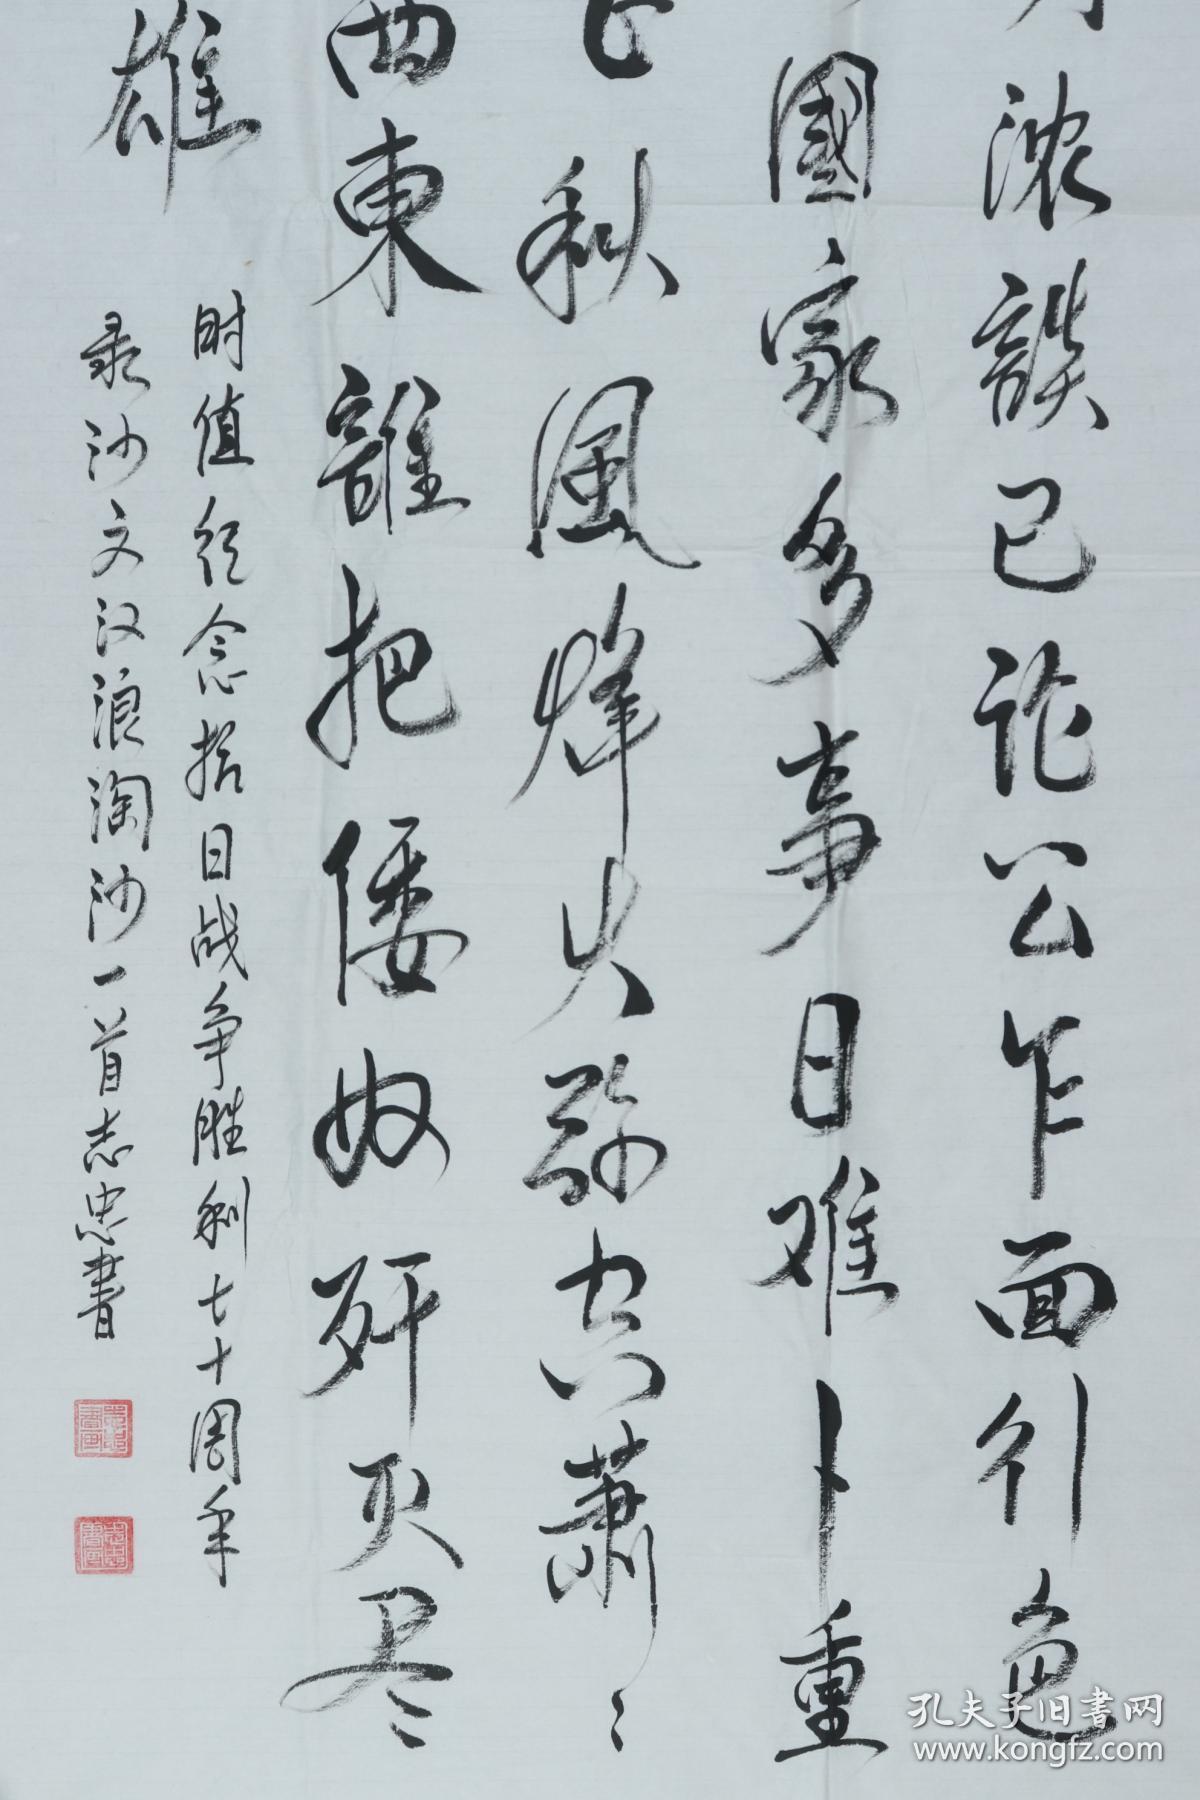 浓談已论公乍面引色
國家多事日难卜重
秋風烽火弥空萧〻
西東誰把倭奴歼灭尽
雄
时值纪念抗日战争胜利七十周年
录沙文汉浪淘沙一首志忠書
孔夫子旧書网
www.kongfz.com